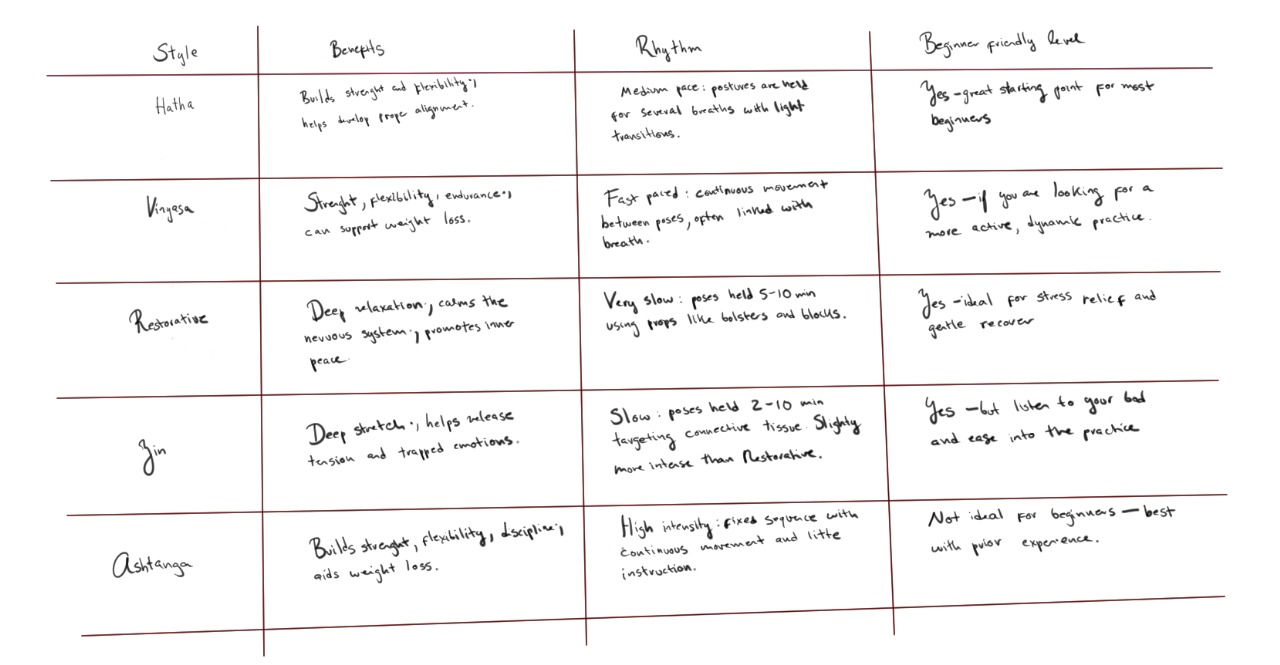 Style
Benefits
Rhythm
Beginner friendly level
Hatha
Builds strenght and flexibility;
helps develop proper alignment.
Medium pace: postures are held
for several breaths with light
transitions.
Yes - great starting point for most
beginners
Vinyasa
Strenght, flexibility, endurance;
can support weight loss.
Fast paced: continuous movement
between poses, often linked with
breath.
Yes - if you are looking for a
more active, dynamic practice.
Restorative
Deep relaxation; calms the
nevuous system; promotes inner
peace.
Very slow: poses held 5-10 min
using props like bolsters and blocks.
Yes - ideal for stress relief and
gentle recover
Yin
Deep stretch; helps release
tension and trapped emotions.
Slow: poses held 2-10 min
targeting connective tissue. Slighty
more intense than Restorative.
Yes - but listen to your bod
and ease into the practice
Ashtanga
Builds strenght, flexibility, discipline;
aids weight loss.
High intensity: fixed sequence with
continuous movement and litte
instruction.
Not ideal for beginners - best
with prior experience.